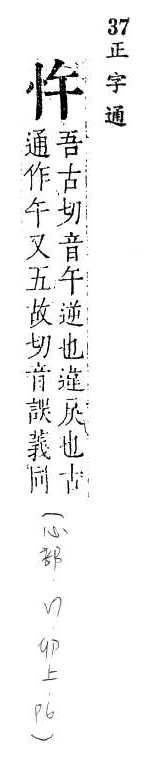 37正字通
忤
吾古切音午逆也違戾也古
通作午又五故切音誤義同
(心部・卯上P6)